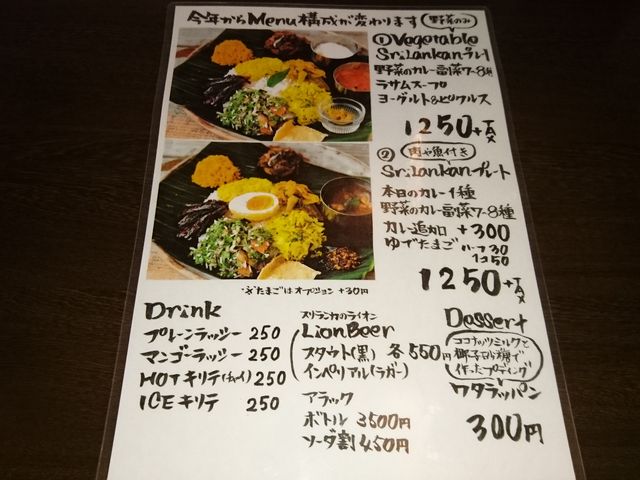 今年からMenu構成が変わります
野菜のみ
① Vegetable
Sri Lankanプレート
野菜のカレー副菜7~8種
ラサムスープ
ヨーグルト&ピクルス
1250+TAX
② 肉や魚付き
Sri Lankanプレート
本日のカレー1種
野菜のカレー副菜7~8種
カレー追加 +300
ゆでたまご ハーフ30
1250+TAX
※たまごはオプション +30円
Drink
プレーンラッシー 250
マンゴーラッシー 250
HOTキリテ(チャイ) 250
ICEキリテ 250
スリランカのライオン
Lion Beer
スタウト(黒) 各550円
インペリアル(ラガー)
アラック
ボトル 3500円
ソーダ割 450円
Dessert
ココナッツミルクと
椰子砂糖で
作ったプディング
ワタラッパン
300円